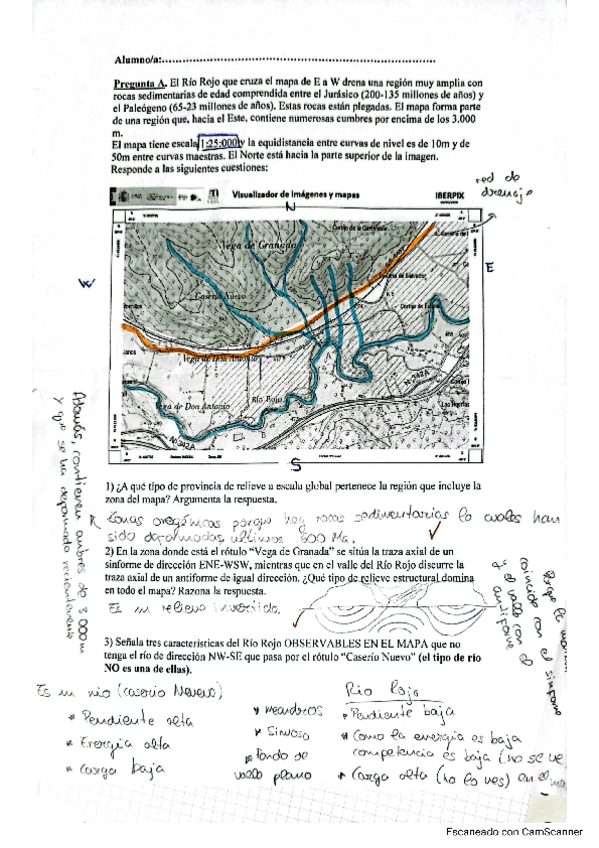 Alumno/a:
Pregunta A. El Río Rojo que cruza el mapa de E a W drena una región muy amplia con
rocas sedimentarias de edad comprendida entre el Jurásico (200-135 millones de años) y
el Paleógeno (65-23 millones de años). Estas rocas están plegadas. El mapa forma parte
de una región que, hacia el Este, contiene numerosas cumbres por encima de los 3.000
m.
El mapa tiene escala 1:25:000 y la equidistancia entre curvas de nivel es de 10m y de
50m entre curvas maestras. El Norte está hacia la parte superior de la imagen.
Responde a las siguientes cuestiones:
red de
drenaje
Visualizador de Imágenes y mapas
IBERPIX
N
Vega de Granada
W
E
Caserío Nuevo
Vega de Don Antonio
Río Rojo
Vega de Don Antonio
N-342A
N-342A
S
Además, contienen cumbres de 3000m
y qe se ha deformado recientemente
1) ¿A qué tipo de provincia de relieve a escala global pertenece la región que incluye la
zona del mapa? Argumenta la respuesta.
Zonas orogénicas porque hay rocas sedimentarias lo cuales han
sido deformadas últimos 500 Ma.
2) En la zona donde está el rótulo "Vega de Granada" se sitúa la traza axial de un
sinforme de dirección ENE-WSW, mientras que en el valle del Río Rojo discurre la
traza axial de un antiforme de igual dirección. ¿Qué tipo de relieve estructural domina
en todo el mapa? Razona la respuesta.
Es un relieve invertido.
Porque la
coincide con el sinforme
el valle con el
antiforme
3) Señala tres características del Río Rojo OBSERVABLES EN EL MAPA que no
tenga el río de dirección NW-SE que pasa por el rótulo "Caserío Nuevo" (el tipo de río
NO es una de ellas).
Es un río (caserio Nuevo)
Rio Rojo
* Pendiente alta
* meandros
* Pendiente baja
* Energia alta
* Sinuoso
* Como la energia es baja
competencia es baja (no se ve
* Carga baja
* Fondo de
valle plano
* Carga alta (no lo ves) en el
Escaneado con CamScanner